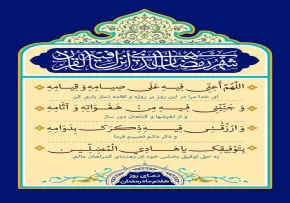 شهر رمضان الذی انزل فیه القرآن
اللّهُمَّ أَعِنِّی فِیهِ عَلَى صِیامِهِ وَ قِیامِهِ
ای خدا مرا در این روز بر روزه و اقامه نماز یاری کن
وَ جَنِّبْنِی فِیهِ مِنْ هَفَوَاتِهِ وَ آثَامِهِ
و از لغزشها و گناهان دور ساز
وَ ارْزُقْنِی فِیهِ ذِکْرَکَ بِدَوَامِهِ
و ذکر دائم نصیبم فرما
بِتَوْفِیقِکَ یَا هَادِیَ الْمُضِلِّینَ
به حق توفیق بخشی خود ای رهنمای گمراهان عالم
دعای روز
هفتم ماه رمضان